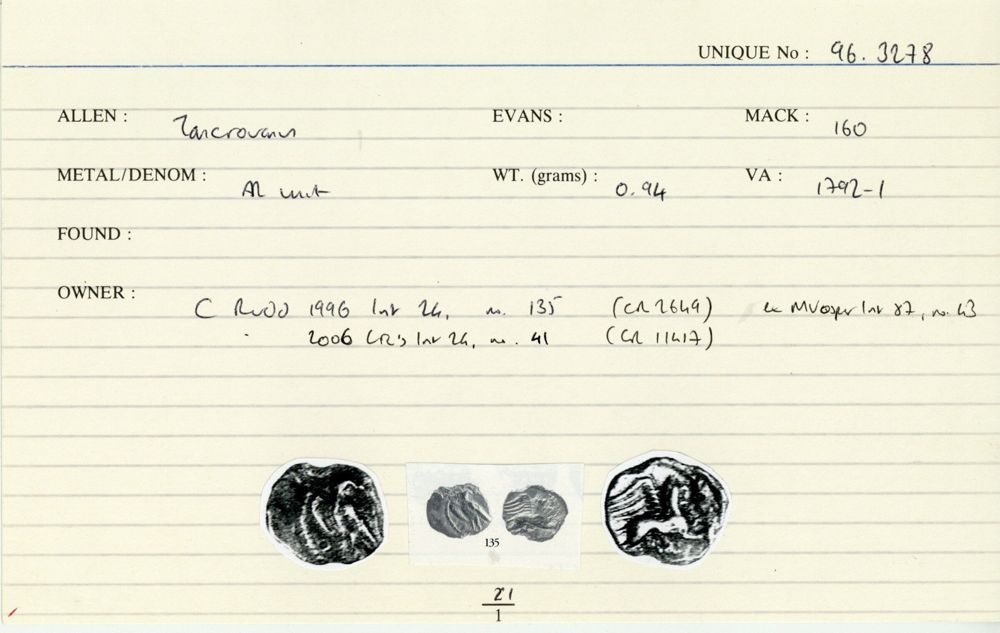 UNIQUE No : 96. 3278
ALLEN : Tasciovanus EVANS : MACK : 160
METAL/DENOM : AR unit WT. (grams) : 0.94 VA : 1792-1
FOUND :
OWNER : C Rudd 1996 list 24, no. 135 (CR 2649) ex M Vosper list 87, no. 43
2006 CR's list 24, no. 41 (CR 11417)
135
21
1